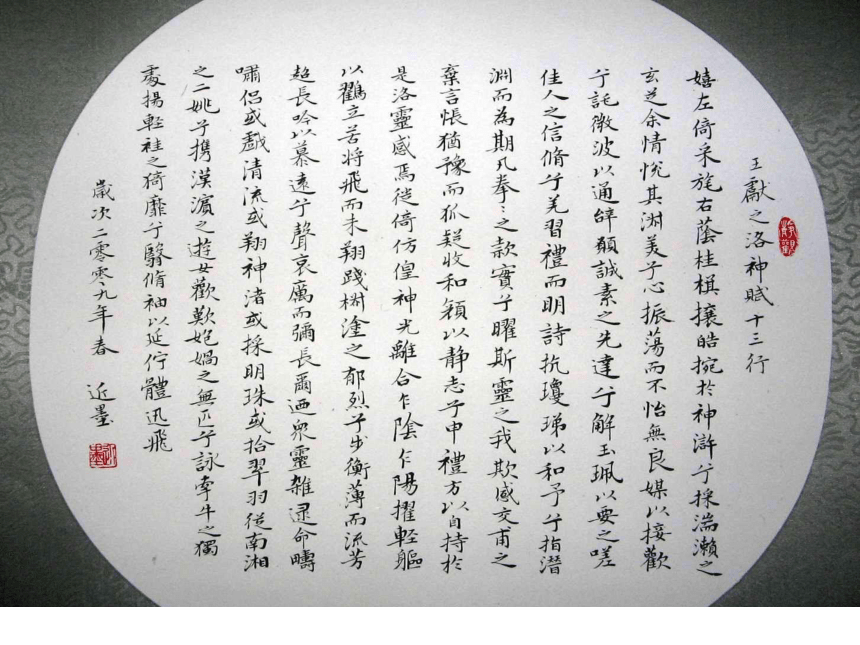 王獻之洛神賦十三行
嬉左倚采旄右蔭桂棋攘皓捥於神滸兮採湍瀨之
玄芝余情悅其淑美兮心振蕩而不怡無良媒以接歡
兮託微波以通辭願誠素之先達兮解玉珮以要之嗟
佳人之信脩兮羌習禮而明詩抗瓊珶以和予兮指潛
淵而為期凡拳〻之款實兮曜斯靈之我欺感交甫之
棄言悵猶豫而狐疑收和顏以静志兮申禮方以自持於
是洛靈感焉徙倚仿偟神光離合乍陰乍陽擢輕軀
以鸖立若將飛而未翔踐椒塗之郁烈兮步衡薄而流芳
超長吟以慕遠兮聲哀厲而彌長爾迺衆靈雜遝命疇
嘯侣或戲清流或翔神渚或採明珠或拾翠羽從南湘
之二姚兮携漢濱之遊女歡歎匏媧之無匹兮詠牽牛之獨
處揚輕袿之猗靡兮翳脩袖以延佇體迅飛
歲次二零零九年春 近墨